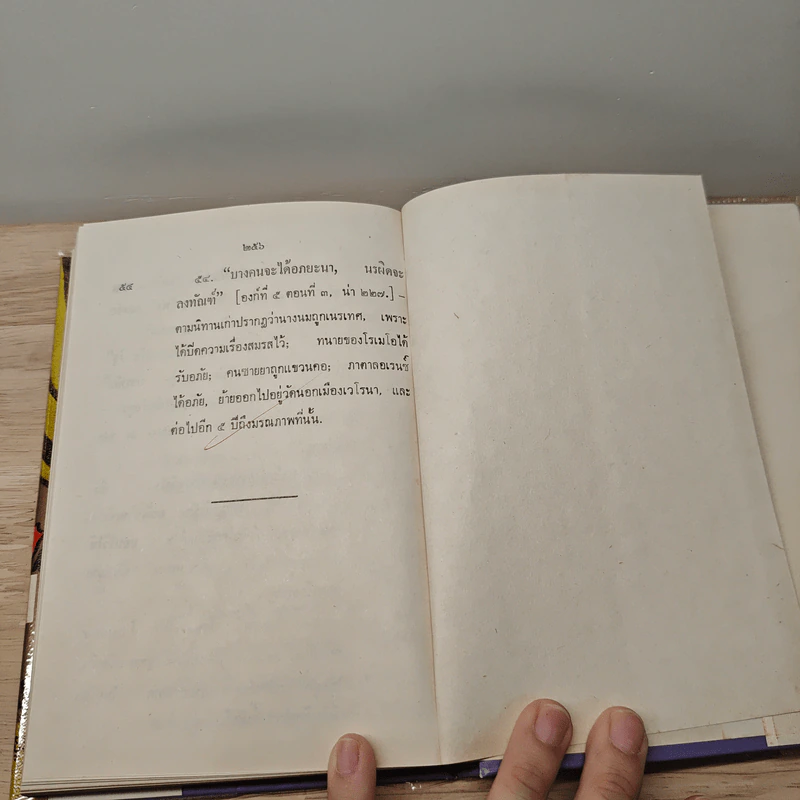 ๒๕๖
๕๔ ๕๔. “บางคนจะได้อภยะนา, นรผิดจะ
ลงทัณฑ์” [องก์ที่ ๕ ตอนที่ ๓, น่า ๒๒๗.] –
ตามนิทานเก่าปรากฏว่านางนมถูกเนรเทศ, เพราะ
ได้ปิดความเรื่องสมรสไว้; ทนายของโรเมโอได้
รับอภัย; คนขายยาถูกแขวนคอ; ภาดาลอเรนซ์
ได้อภัย, ย้ายออกไปอยู่วัดนอกเมืองเวโรนา, และ
ต่อไปอีก ๕ ปีถึงมรณภาพที่นั้น.